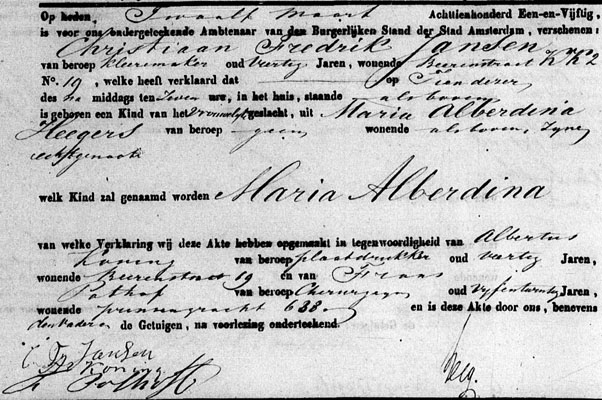 Op heden, Twaalf Maart Achttienhonderd Een-en-Vijftig,
is voor ons ondergeteekende Ambtenaar van den Burgerlijken Stand der Stad Amsterdam, verschenen:
Christiaan Fredrik Jansen
van beroep kleermaker oud veertig Jaren, wonende Beerenstraat
No. 19, welke heeft verklaard dat op Tien dezer
des na middags ten Zeven ure, in het huis, staande als boven
is geboren een Kind van het Vrouwelijk geslacht, uit Maria Alberdina
Heegers van beroep geen wonende als boven, Zijne
echtgenoote
welk Kind zal genaamd worden Maria Alberdina
van welke Verklaring wij deze Akte hebben opgemaakt in tegenwoordigheid van Albertus
Koning van beroep plaatdrukker oud veertig Jaren,
wonende Beerenstraat 19 en van Frans
van beroep Chirurgijn oud Vijfentwintig Jaren,
wonende Prinsengracht 638 en is deze Akte door ons, benevens
den Vader en de Getuigen, na voorlezing onderteekend.
Jansen
Koning